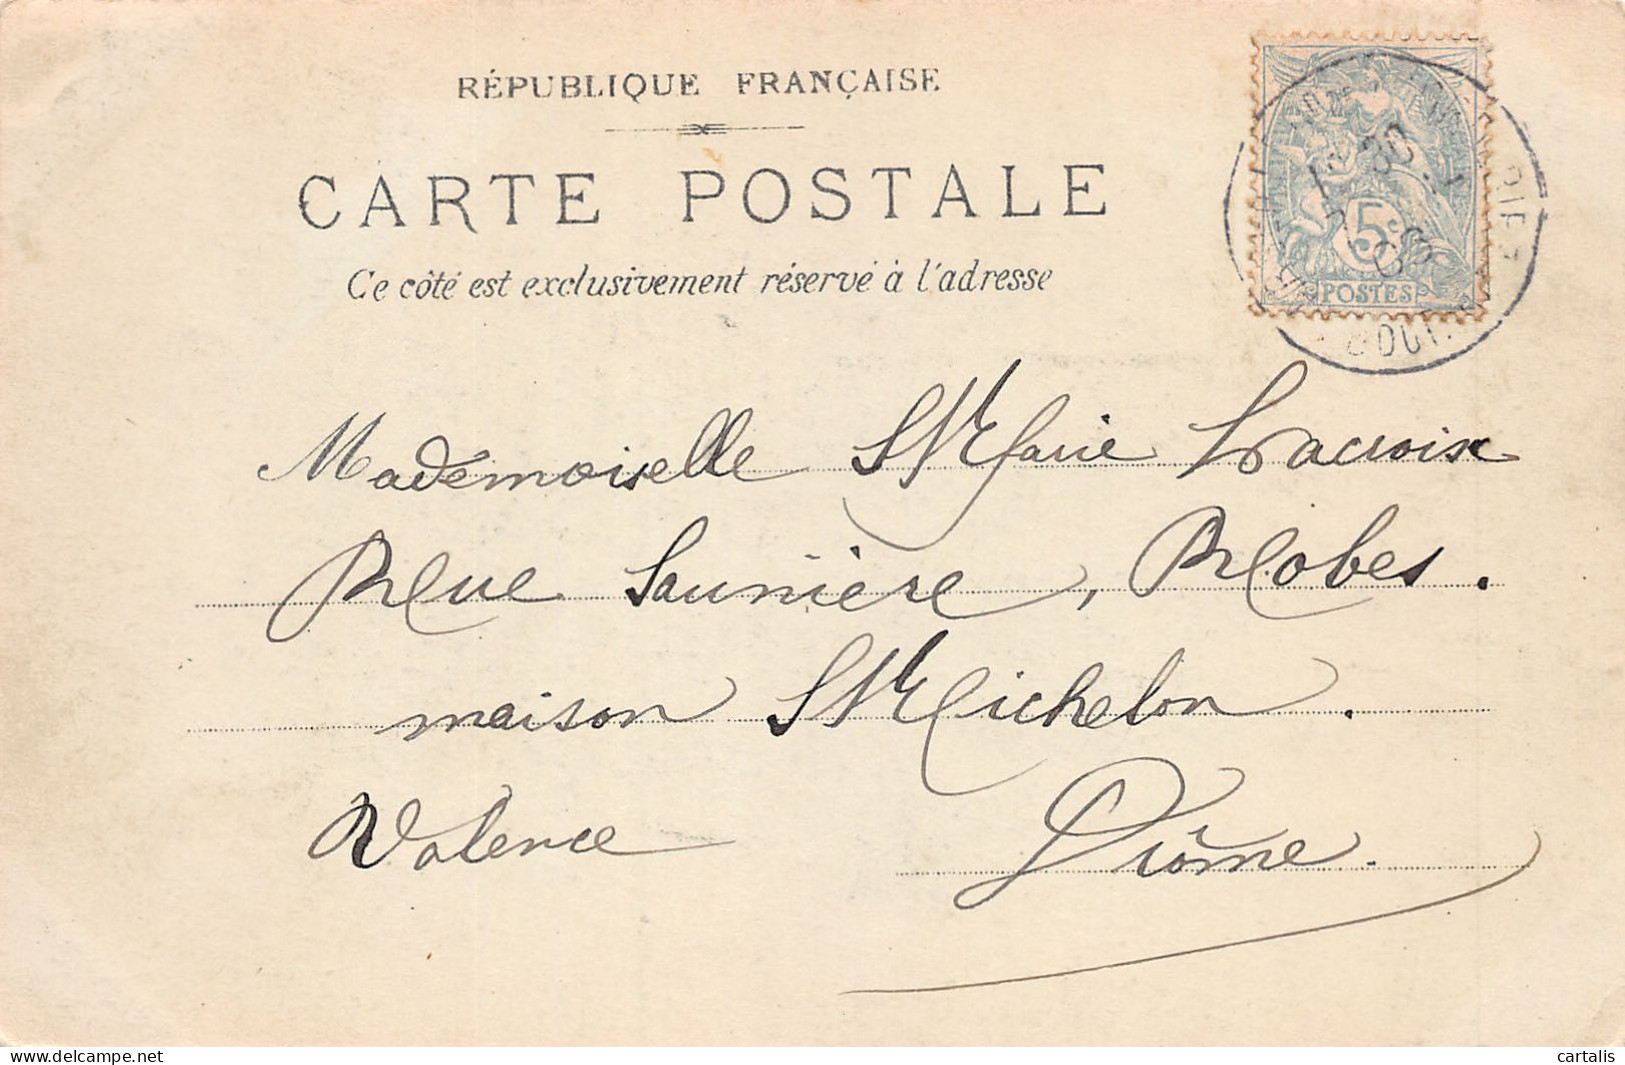 RÉPUBLIQUE FRANÇAISE
CARTE POSTALE
Ce côté est exclusivement réservé à l'adresse
5c
POSTES
Mademoiselle Marie Lacroix
Rue Saunière, Robes.
maison Michelon.
Valence Drôme.
delcampe.net
cartalis